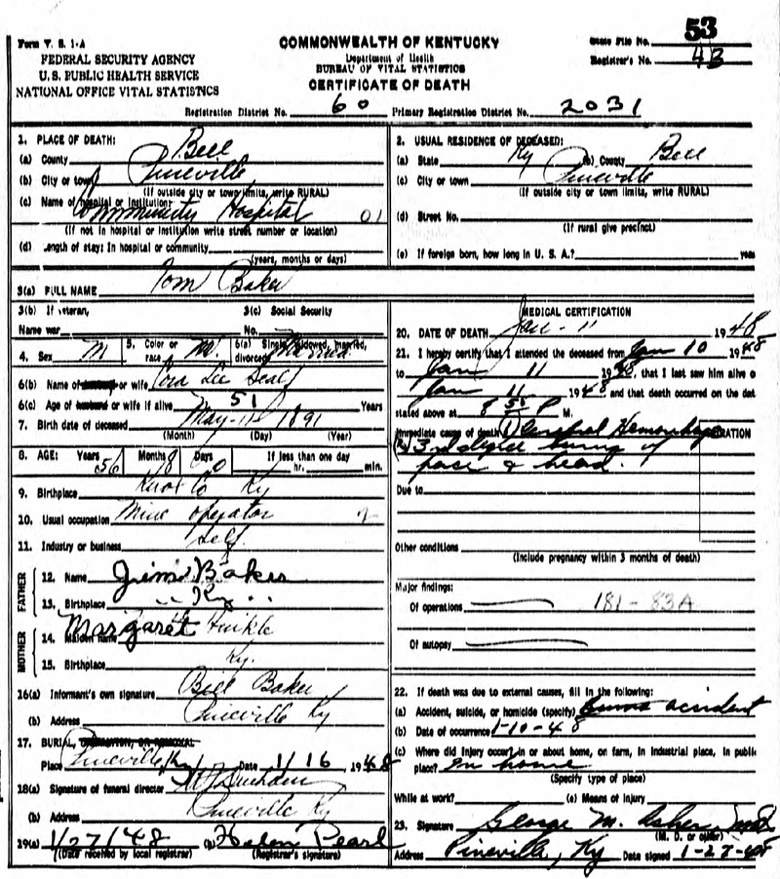 53
Form V. S. 1-A
COMMONWEALTH OF KENTUCKY
State File No.
FEDERAL SECURITY AGENCY
Department of Health
Registrar's No. 43
U. S. PUBLIC HEALTH SERVICE
BUREAU OF VITAL STATISTICS
NATIONAL OFFICE VITAL STATISTICS
CERTIFICATE OF DEATH
Registration District No. 60 Primary Registration District No. 2031
1. PLACE OF DEATH:
(a) County Bell
(b) City or town Pineville
(If outside city or town limits, write RURAL)
(c) Name of hospital or institution:
Community Hospital 01
(If not in hospital or institution write street number or location)
(d) Length of stay: In hospital or community
(years, months or days)
2. USUAL RESIDENCE OF DECEASED:
(a) State Ky (b) County Bell
(c) City or town Pineville
(If outside city or town limits, write RURAL)
(d) Street No.
(If rural give precinct)
(e) If foreign born, how long in U. S. A.? years
3(a) FULL NAME Tom Baker
3(b) If veteran,
Name war
3(c) Social Security
No.
4. Sex M 5. Color or race W. 6(a) Single, widowed, married, divorced Married
6(b) Name of husband or wife Cora Lee Seal
6(c) Age of husband or wife if alive 51 Years
7. Birth date of deceased May-11-1891
(Month) (Day) (Year)
8. AGE: Years 56 Months 8 Days 0 If less than one day
hr. min.
9. Birthplace Knox Co Ky
10. Usual occupation Mine operator
11. Industry or business Self
FATHER
12. Name Jim Baker
13. Birthplace " Ky "
MOTHER
14. Maiden name Margaret Hinkle
15. Birthplace Ky.
16(a) Informant's own signature Bill Baker
(b) Address Pineville Ky
17. BURIAL, CREMATION, OR REMOVAL
Place Pineville, Ky Date 1/16 1948
18(a) Signature of funeral director
(b) Address Pineville Ky
19(a) 1/27/48 (b) Helen Pearl
(Date received by local registrar) (Registrar's signature)
MEDICAL CERTIFICATION
20. DATE OF DEATH Jan - 11 1948
21. I hereby certify that I attended the deceased from Jan 10 1948
to Jan 11 1948, that I last saw him alive o
Jan 11 1948 and that death occurred on the dat
stated above at 8 55 P M.
Immediate cause of death (1) Cerebral Hemorrhage
DURATION
(2) 3rd degree burns of
face & head.
Due to
Other conditions
(Include pregnancy within 3 months of death)
Major findings:
Of operations 181-83A
Of autopsy
22. If death was due to external causes, fill in the following:
(a) Accident, suicide, or homicide (specify) Burns accident
(b) Date of occurrence 1-10-48
(c) Where did injury occur, in or about home, on farm, in industrial place, in public
place? In home
(Specify type of place)
While at work? (e) Means of injury
23. Signature George M. Asher
(M. D. or other)
Address Pineville, Ky Date signed 1-27-48